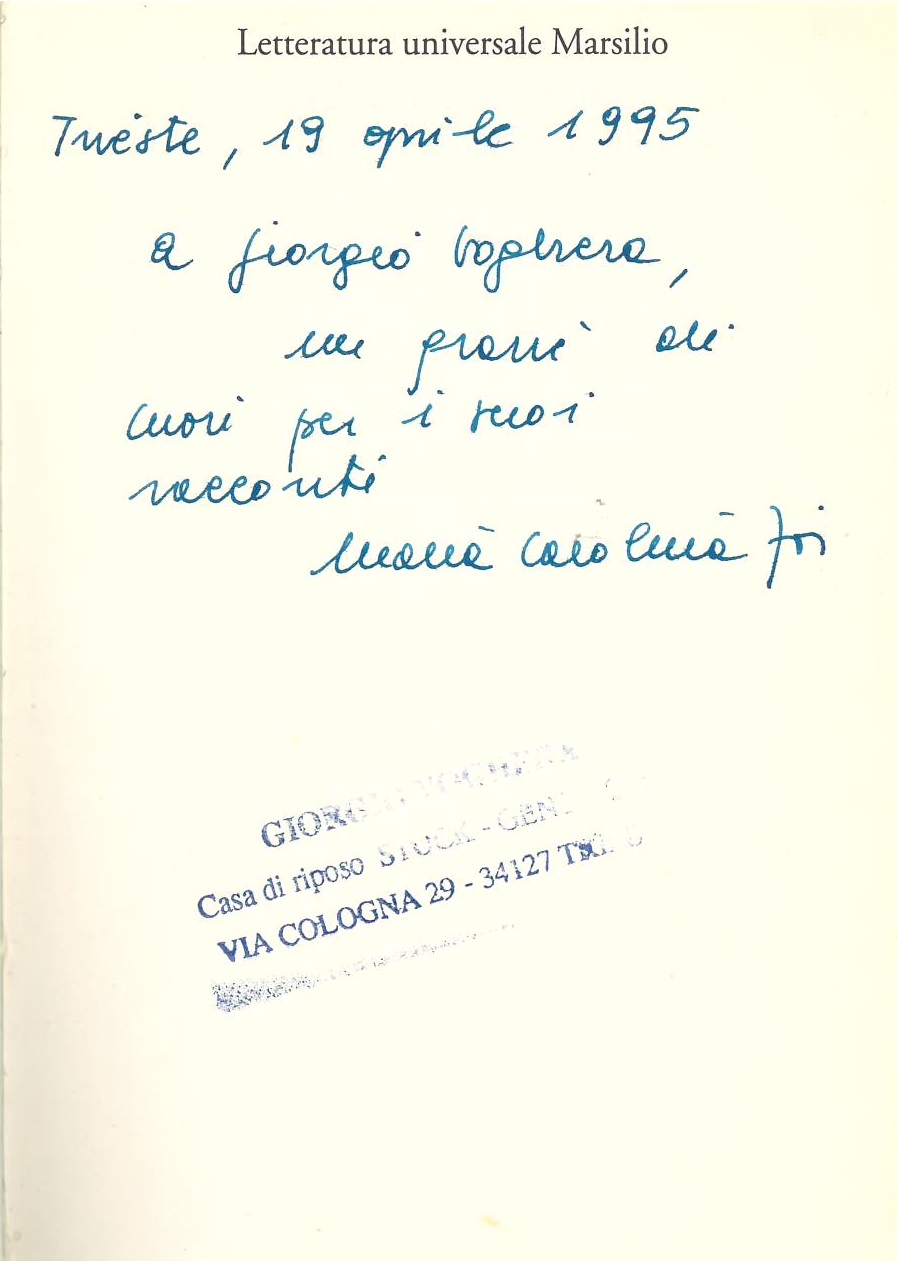 Letteratura universale Marsilio
Trieste, 19 aprile 1995
a Giorgio Voghera,
un grazie di
cuore per i suoi
racconti
Maria Carolina Foi
GIORGIO VOGHERA
Casa di riposo STOCK - GENT
VIA COLOGNA 29 - 34127